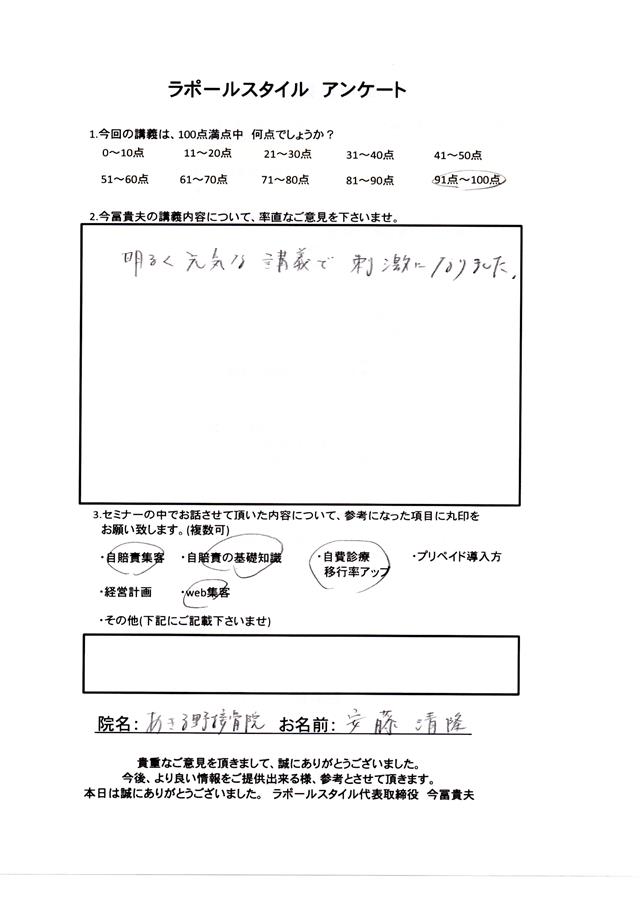 ラポールスタイル アンケート
1.今回の講義は、100点満点中 何点でしょうか？
0～10点 11～20点 21～30点 31～40点 41～50点
51～60点 61～70点 71～80点 81～90点 91点～100点
2.今冨貴夫の講義内容について、率直なご意見を下さいませ。
明るく元気な講義で刺激になりました。
3.セミナーの中でお話させて頂いた内容について、参考になった項目に丸印を
お願い致します。(複数可)
・自賠責集客 ・自賠責の基礎知識 ・自費診療 ・プリペイド導入方
移行率アップ
・経営計画 ・web集客
・その他(下記にご記載下さいませ)
院名： あきる野接骨院 お名前： 安藤 清隆
貴重なご意見を頂きまして、誠にありがとうございました。
今後、より良い情報をご提供出来る様、参考とさせて頂きます。
本日は誠にありがとうございました。 ラポールスタイル代表取締役 今冨貴夫